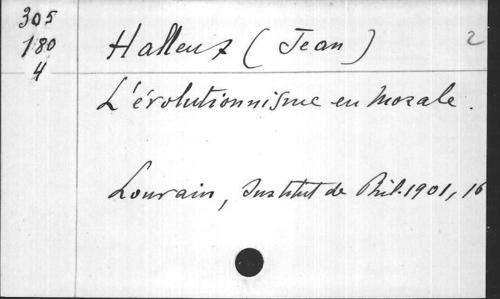 305
180
4
Halleux (Jean)
2
L'évolutionnisme en Morale.
Louvain, Institut de Phil. 1901, 16